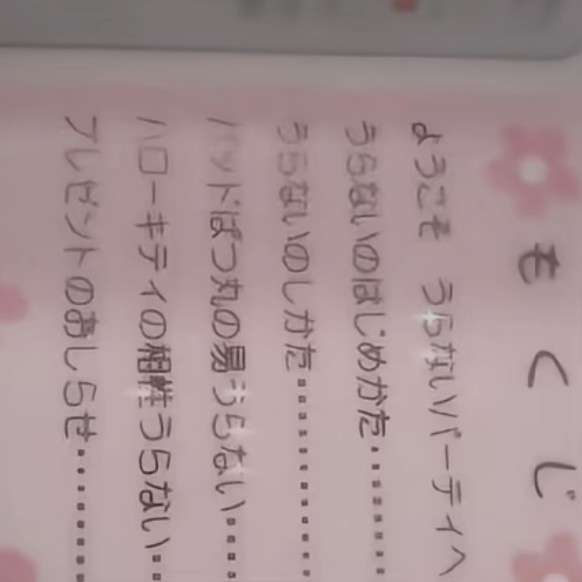 もくじ
ようこそ うらないパーティへ
うらないのはじめかた………
うらないのしかた…………
バッドばつ丸の易うらない……
ハローキティの相性うらない…
プレゼントのおしらせ…………